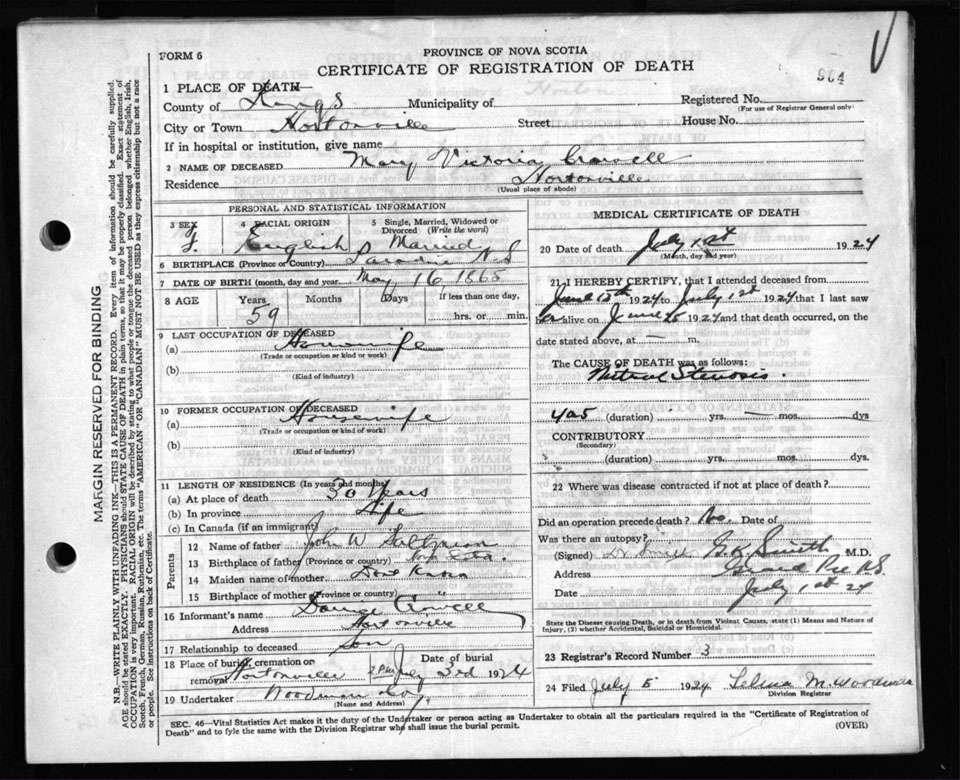 FORM 6
PROVINCE OF NOVA SCOTIA
CERTIFICATE OF REGISTRATION OF DEATH
964
1 PLACE OF DEATH—
County of Kings Municipality of Registered No.
(For use of Registrar General only)
City or Town Hortonville Street House No.
If in hospital or institution, give name
2 NAME OF DECEASED Mary Victoria Crowell
Residence Hortonville
(Usual place of abode)
PERSONAL AND STATISTICAL INFORMATION
3 SEX 4 RACIAL ORIGIN 5 Single, Married, Widowed or Divorced (Write the word)
f. English Married
6 BIRTHPLACE (Province or Country) Paradise N S
7 DATE OF BIRTH (month, day and year) May 16 1865
8 AGE Years Months Days If less than one day,
59 hrs. or min.
9 LAST OCCUPATION OF DECEASED
(a) Housewife
(Trade or occupation or kind or work)
(b)
(Kind of industry)
10 FORMER OCCUPATION OF DECEASED
(a) Housewife
(Trade or occupation or kind or work)
(b)
(Kind of industry)
11 LENGTH OF RESIDENCE (In years and months)
(a) At place of death 30 Years
(b) In province Life
(c) In Canada (if an immigrant)
Parents
12 Name of father John W
13 Birthplace of father (Province or country)
14 Maiden name of mother Dont Know
15 Birthplace of mother (Province or country) "
16 Informant's name Crowell
Address Hortonville
17 Relationship to deceased Son
18 Place of burial, cremation or removal Hortonville Date of burial 2 PM July 3rd 1924
19 Undertaker Woodman
(Name and Address)
MEDICAL CERTIFICATE OF DEATH
20 Date of death July 1st 1924
(Month, day and year)
21 I HEREBY CERTIFY, that I attended deceased from
June 15th 1924 to July 1st 1924 that I last saw
her alive on June 1924 and that death occurred, on the
date stated above, at — m.
The CAUSE OF DEATH was as follows:
Mitral Stenosis.
(duration) yrs. — mos. dys
CONTRIBUTORY
(Secondary)
(duration) yrs. mos. dys
22 Where was disease contracted if not at place of death?
Did an operation precede death? No. Date of
Was there an autopsy?
(Signed) Smith M.D.
Address Grand Pre N.S.
Date July 1st 24
State the Disease causing Death, or in death from Violent Causes, state (1) Means and Nature of Injury, (2) whether Accidental, Suicidal or Homicidal.
23 Registrar's Record Number 3
24 Filed July 5 1924 M. Woodman
Division Registrar
SEC. 46—Vital Statistics Act makes it the duty of the Undertaker or person acting as Undertaker to obtain all the particulars required in the "Certificate of Registration of
Death" and to fyle the same with the Division Registrar who shall issue the burial permit.
(OVER)
MARGIN RESERVED FOR BINDING
N.B.—WRITE PLAINLY WITH UNFADING INK—THIS IS A PERMANENT RECORD. Every item of information should be carefully supplied.
AGE should be stated EXACTLY. PHYSICIANS should STATE CAUSE OF DEATH in plain terms, so that it may be properly classified. Exact statement of
OCCUPATION is very important. RACIAL ORIGIN will be described by stating to what people or tongue the deceased person belonged whether English, Irish,
Scotch, French, German, Russian, Ruthenian, etc. The terms "AMERICAN" OR "CANADIAN" MUST NOT BE USED as they express citizenship but not a race
or people. See instructions on back of Certificate.